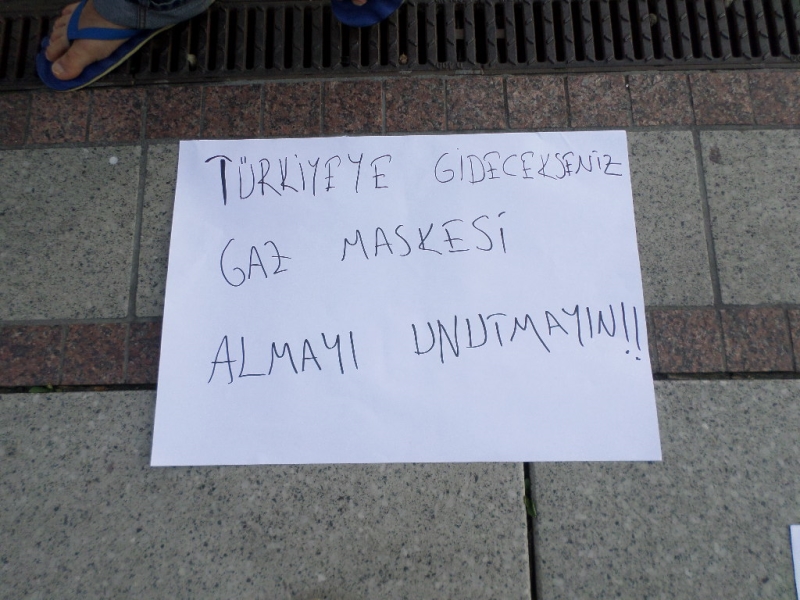 TÜRKİYEYE GİDECEKSENİZ
GAZ MASKESİ
ALMAYI UNUTMAYIN!!